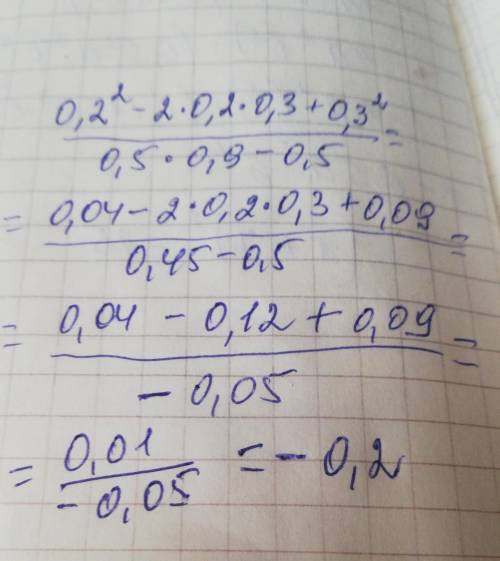 0,2² - 2·0,2·0,3 + 0,3²
0,5·0,9 - 0,5 =
= 0,04 - 2·0,2·0,3 + 0,09
0,45 - 0,5 =
= 0,04 - 0,12 + 0,09 =
- 0,05
= 0,01 = - 0,2
- 0,05